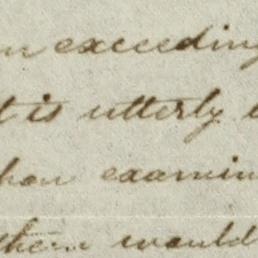 exceeding
t is utterly
examin
them would